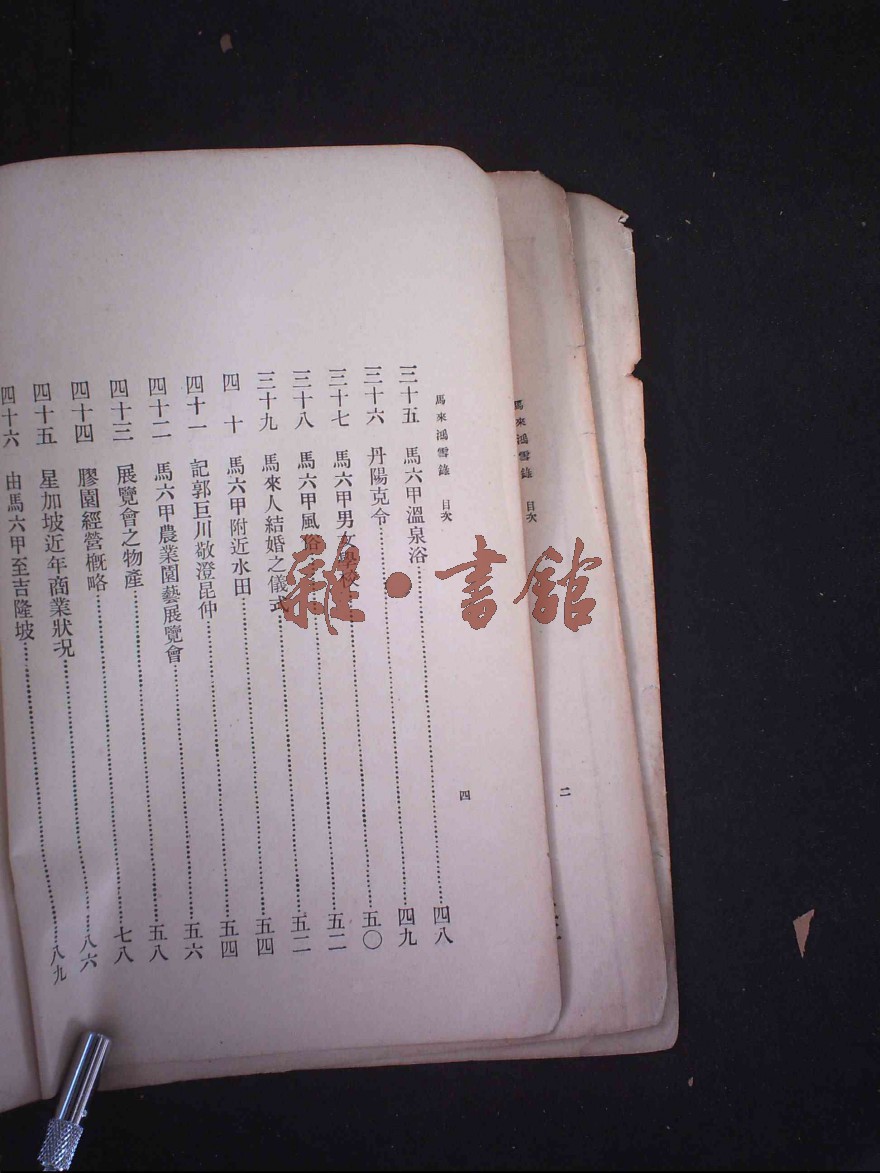 馬來鴻雪錄 目次 二
馬來鴻雪錄 目次 四
三十五 馬六甲溫泉浴……四八
三十六 丹陽克令……四九
三十七 馬六甲男女學校……五〇
三十八 馬六甲風俗……五二
三十九 馬來人結婚之儀式……五二
四十 馬六甲附近水田……五四
四十一 記郭巨川敬澄昆仲……五四
四十二 馬六甲農業園藝展覽會……五六
四十三 展覽會之物產……五八
四十四 膠園經營槪略……七八
四十五 星加坡近年商業狀况……八六
四十六 由馬六甲至吉隆坡……八九
雜·書館